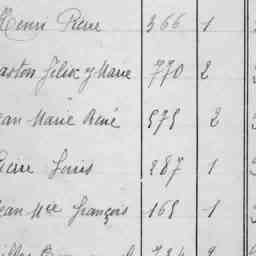 Henri Pierre 366 1
Gaston Félix J Marie 770 2
Jean Marie René 575 2
Pierre Louis 287 1
Jean Mce François 165 1